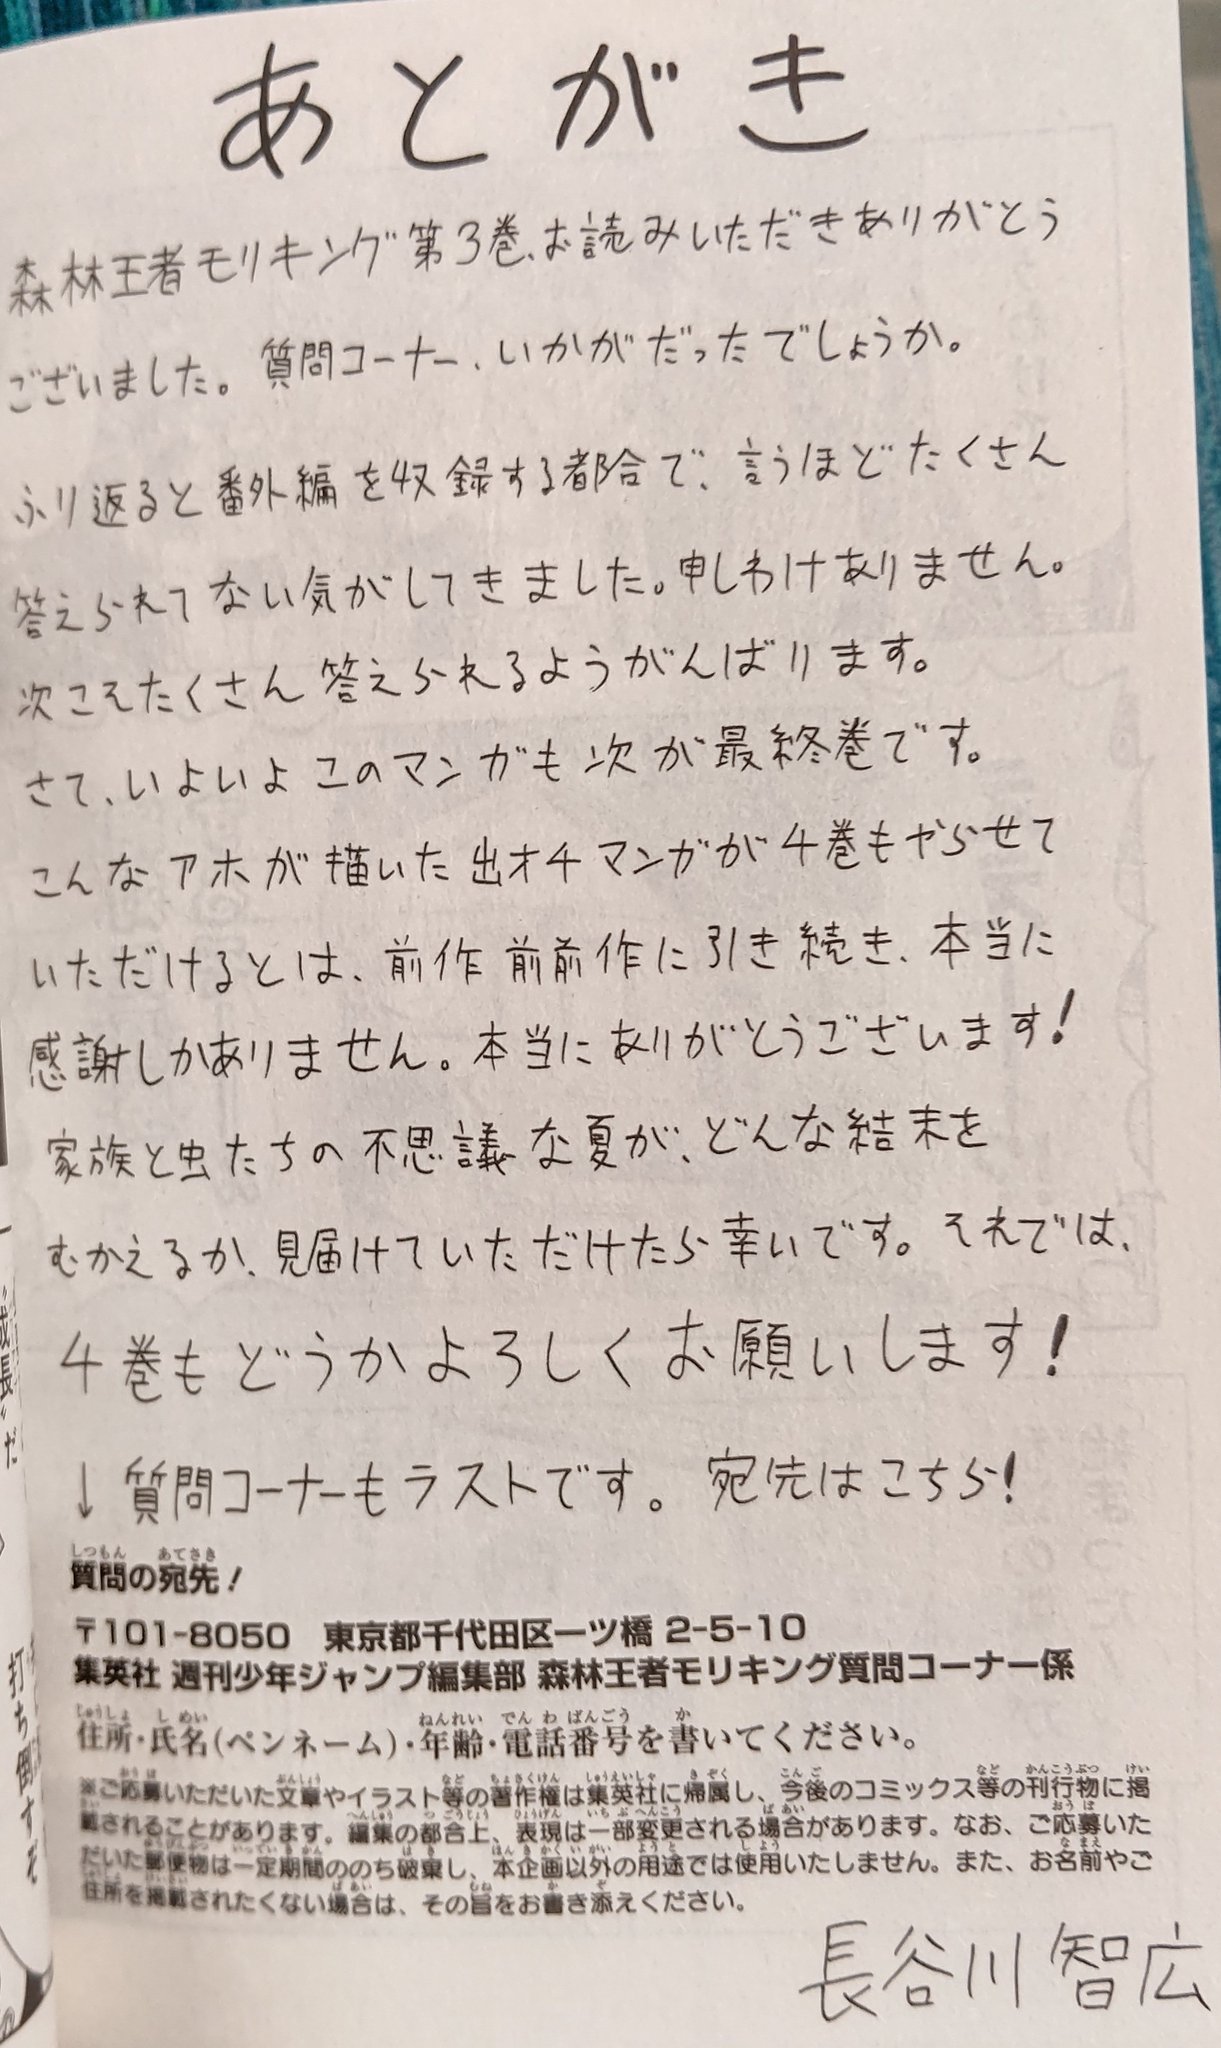 あとがき
森林王者モリキング第3巻、お読みいただきありがとう
ございました。質問コーナー、いかがだったでしょうか。
ふり返ると番外編を収録する都合で、言うほどたくさん
答えられてない気がしてきました。申しわけありません。
次こそたくさん答えられるようがんばります。
さて、いよいよこのマンガも次が最終巻です。
こんなアホが描いた出オチマンガが4巻もやらせて
いただけるとは、前作前前作に引き続き、本当に
感謝しかありません。本当にありがとうございます!
家族と虫たちの不思議な夏が、どんな結末を
むかえるか、見届けていただけたら幸いです。それでは、
4巻もどうかよろしくお願いします!
↓質問コーナーもラストです。宛先はこちら!
質問の宛先!
〒101-8050 東京都千代田区一ツ橋2-5-10
集英社 週刊少年ジャンプ編集部 森林王者モリキング質問コーナー係
住所・氏名(ペンネーム)・年齢・電話番号を書いてください。
※ご応募いただいた文章やイラスト等の著作権は集英社に帰属し、今後のコミックス等の刊行物に掲
載されることがあります。編集の都合上、表現は一部変更される場合があります。なお、ご応募いた
だいた郵便物は一定期間ののち破棄し、本企画以外の用途では使用いたしません。また、お名前やご
住所を掲載されたくない場合は、その旨をお書き添えください。
長谷川智広
"成長"だ
打ち倒すぞ